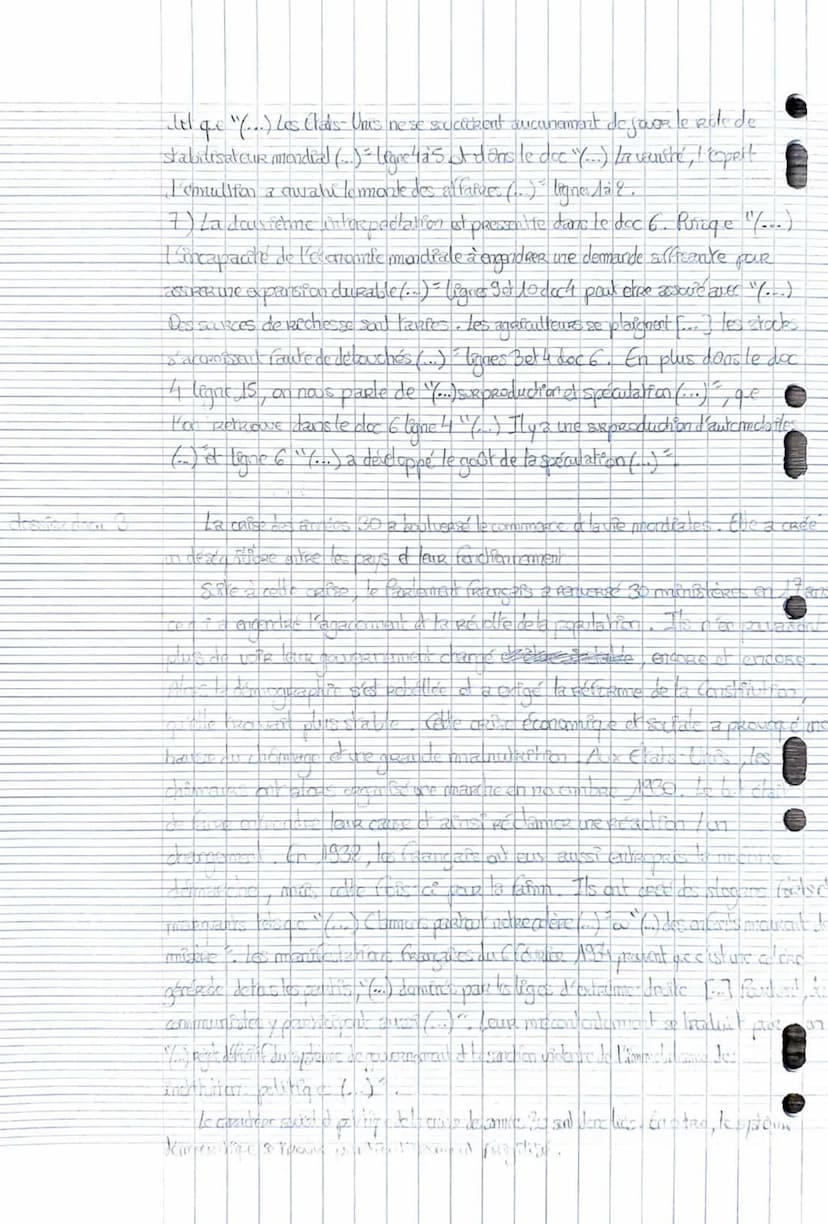 tel que "(...) Les Etats-Unis ne se soucièrent aucunement de jouer le rôle de
stabilisateur mondial (...)" ligne 4 à 5 et dans le doc "(...) la vanité, l'esprit
d'émulation a envahi le monde des affaires (...)" lignes 1 à 2.
7) La deuxième interprétation est pressentie dans le doc 6. Puisque "(...)
l'incapacité de l'économie mondiale à engendrer une demande suffisante pour
assurer une expansion durable (...)" lignes 9 et 10 doc 4 peut être associé avec "(...)
Des sources de richesse sont taries. Les agriculteurs se plaignent [...] les stocks
s'accroissent faute de débouchés (...)" lignes 3 et 4 doc 6. En plus dans le doc
4 ligne 15, on nous parle de "(...) surproduction et spéculation (...)", que
l'on retrouve dans le doc 6 ligne 4 "(...) Il y a une surproduction d'automobiles
(...)" et ligne 6 "(...) a développé le goût de la spéculation (...)".
La crise des années 30 a bouleversé le commerce et la vie mondiales. Elle a créé
un déséquilibre entre les pays et leur fonctionnement.
Suite à cette crise, le Parlement français a renversé 30 ministères en 17 ans
ce qui a engendré l'agacement et la révolte de la population. Ils n'en pouvaient
plus de voir leur gouvernement changé, encore et encore.
Alors la démographie s'est rebellée et a exigé la réforme de la Constitution,
qu'elle trouvait plus stable. Cette crise économique et sociale a provoqué une
hausse du chômage et une grande malnutrition. Aux Etats-Unis, les
chômeurs ont alors organisé une marche en novembre 1930. Le but était
de faire entendre leur cause et ainsi réclamer une réaction / un
changement. En 1932, les français ont eux aussi entrepris la même
démarche, mais cette fois-ci pour la faim. Ils ont créé des slogans
marquants tels que "(...) Clamons partout notre colère (...)" ou "(...) des enfants meurent de
misère". Les manifestations françaises du 6 février 1934 prouvent que c'est une colère
générale de tous les partis, "(...) dominés par les ligues d'extrême-droite [...] Pourtant, les
communistes y participent aussi (...)". Leur mécontentement se traduit par un
"(...) rejet définitif du système de gouvernement et la sanction violente de l'immobilisme des
institutions politique (...)".
Le caractère social et politique de la crise des années 30 sont donc liés. En outre, le système
démocratique se trouve fragilisé.